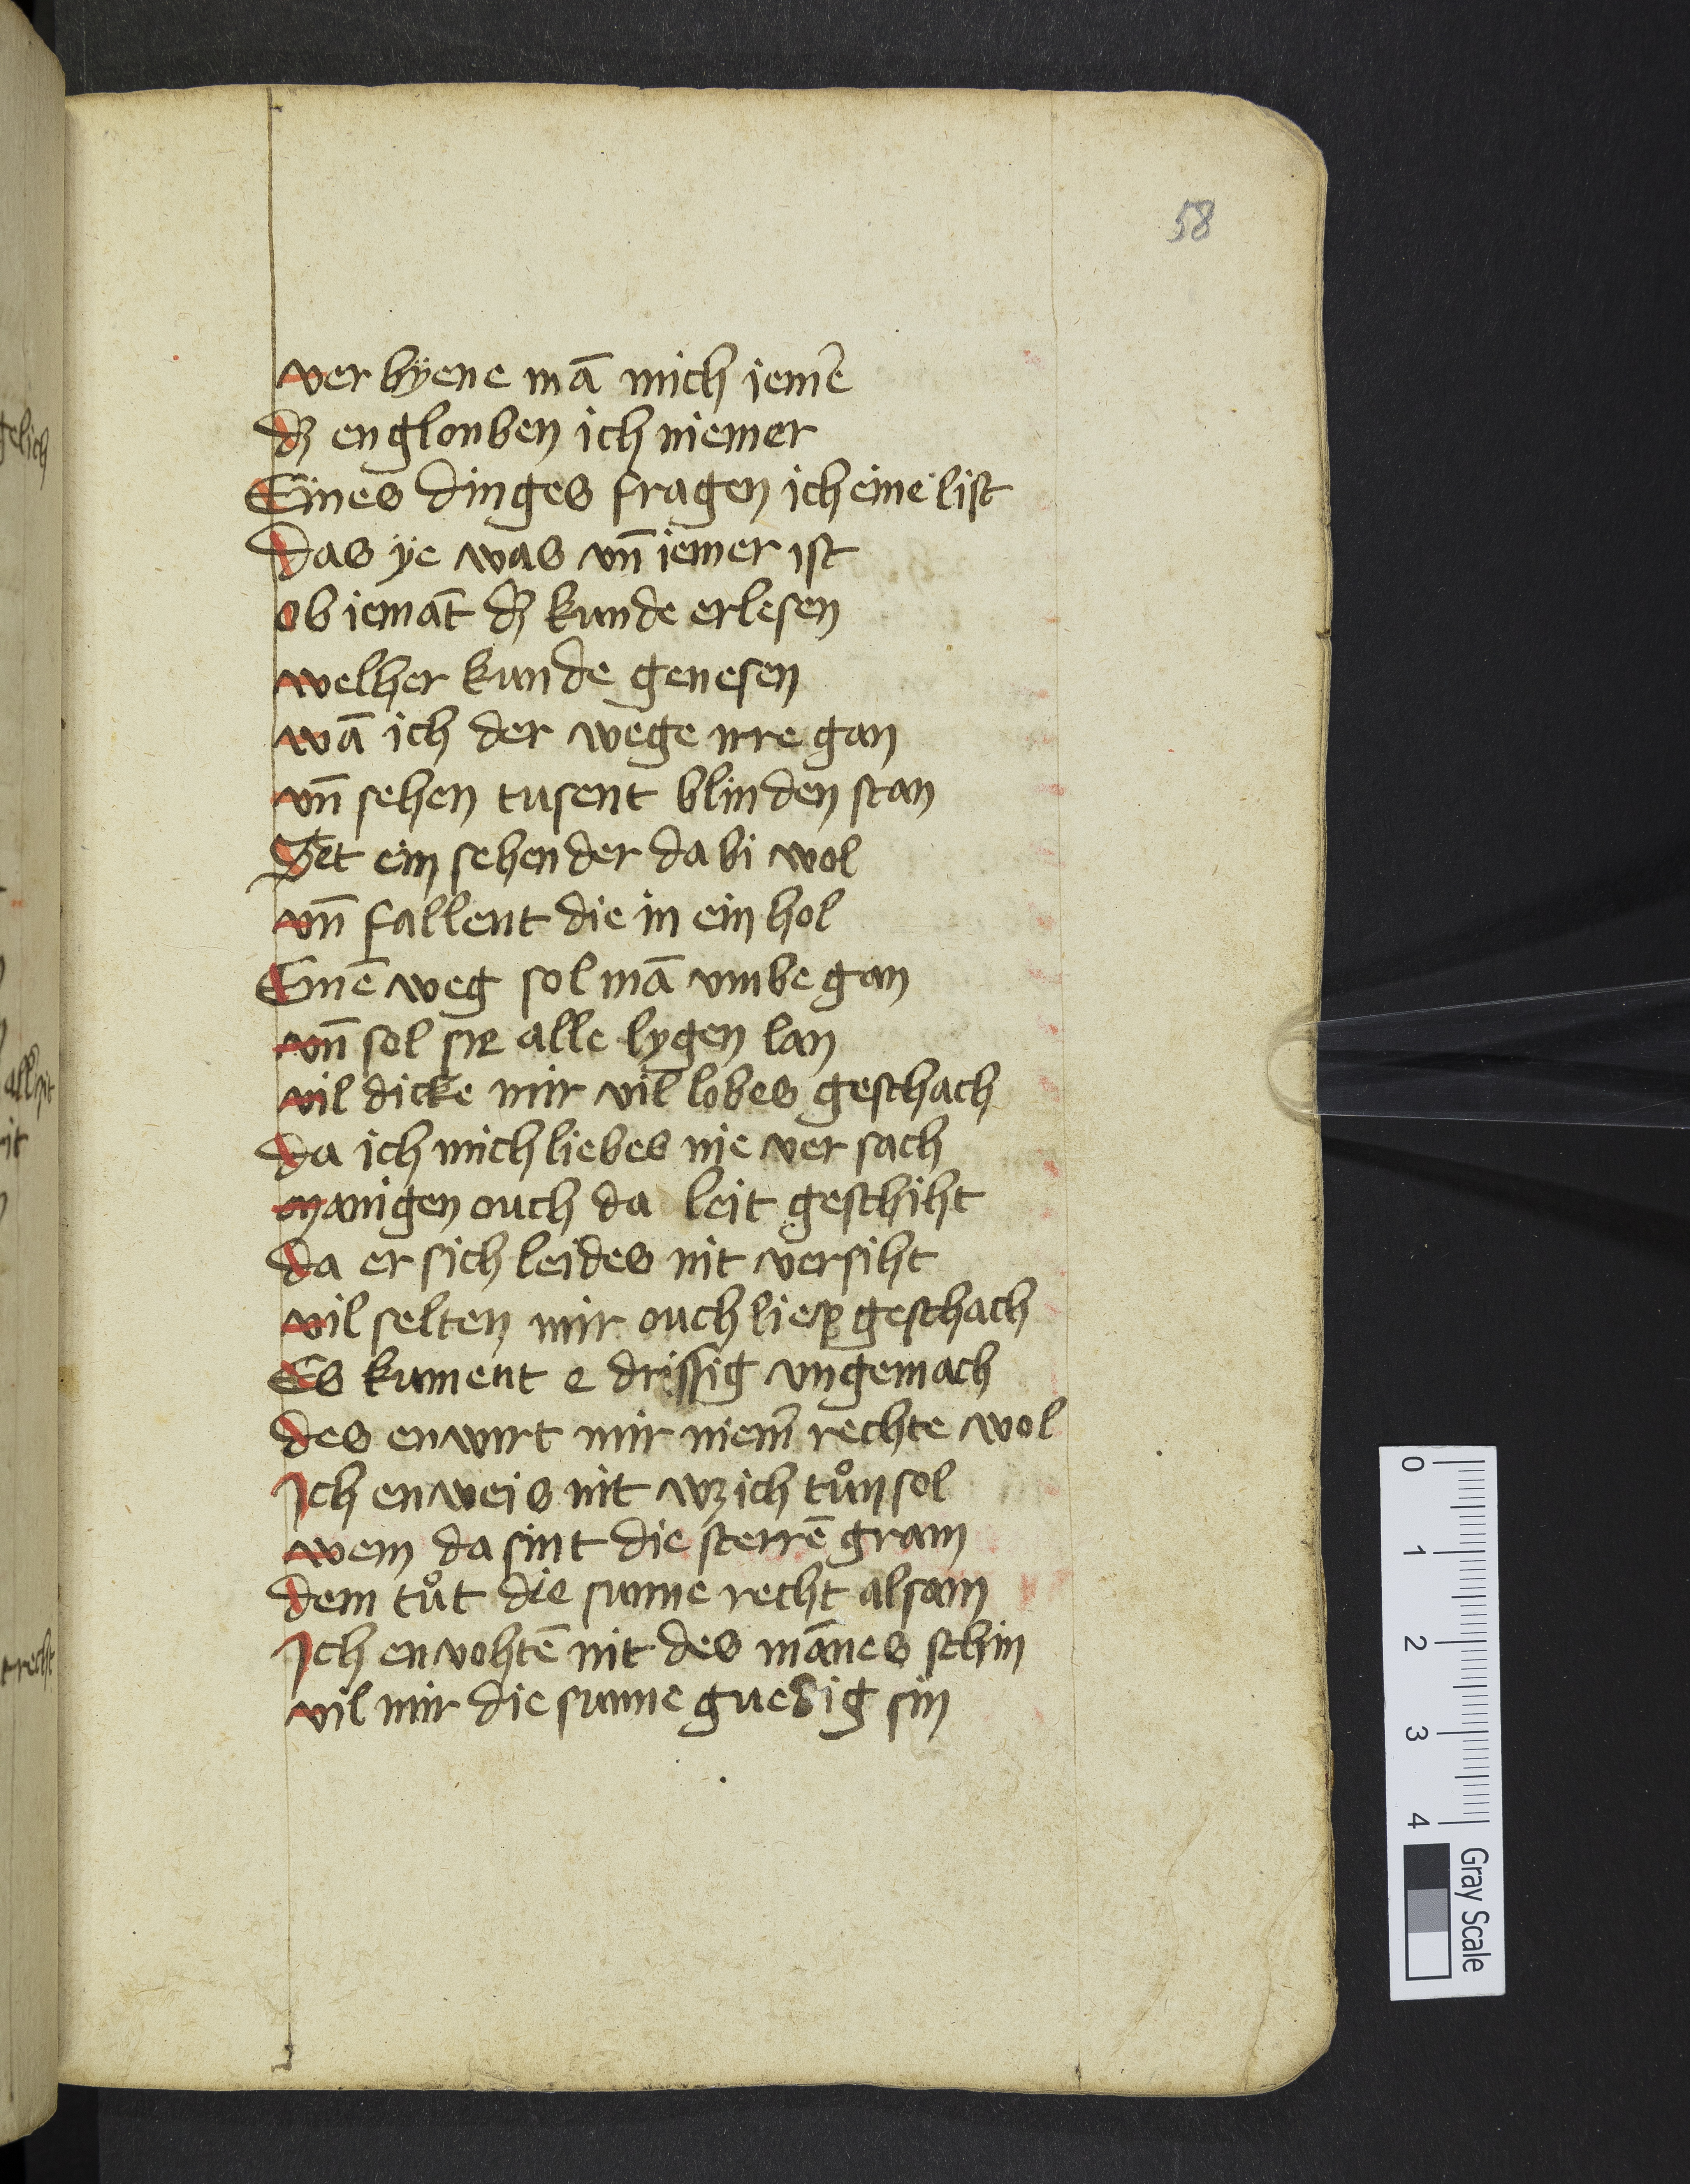 58
ver byene mā mich iem̄e
dʒ englouben ich niemer
Eines dinges fragen ich eine list
das ÿe was vn̄ iemer ist
ob iemāt dʒ kunde erlesen
welher kunde genesen
wā ich der wege irre gan
vn̄ sehen tusent blinden stan
Get ein sehender da bi wol
vn̄ fallent die in ein hol
Einē weg sol mā vmbe gan
vn̄ sol sie alle lygen lan
vil dicke mir vil lobes geschach
da ich mich liebes nie ver sach
manigen ouch da leit geschiht
da er sich leides nit versiht
vil selten mir ouch liep geschach
Es kument e drissig vngemach
des enwirt mir niem̄ rechte wol
Ich enweis nit wʒ ich tůn sol
wem da sint die sterrē gram
dem tůt die sunne recht alsam
Ich envohtē nit des mānes schin
vil mir die sunne guedig sin
gelich
allzit
it
recht
0
1
2
3
4
Gray Scale